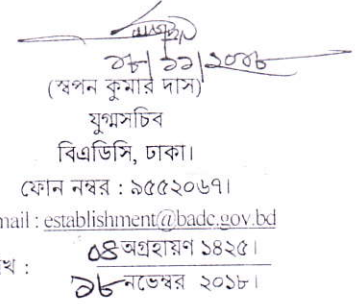 ১৮/১১/২০১৮
(স্বপন কুমার দাস)
যুগ্মসচিব
বিএডিসি, ঢাকা।
ফোন নম্বর : ৯৫৫২০৬৭।
mail : establishment@badc.gov.bd
০৪ অগ্রহায়ণ ১৪২৫।
খ :
১৮ নভেম্বর ২০১৮।